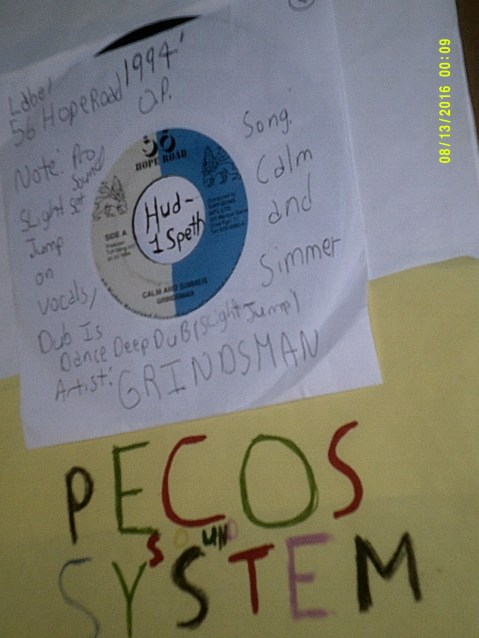 Label
56 Hope Road 1994'
OP.
Note: Pro
Sound
Slight set
Jump
on
Vocals/
Dub Is
Dance Deep Dub (Slight Jump)
Artist: GRINDSMAN
Song:
Calm
and
Simmer
56
HOPE ROAD
Hud-
1 Speth
SIDE A
CALM AND SIMMER
GRINDSMAN
PECOS
SOUND
SYSTEM
08/13/2016 00:09